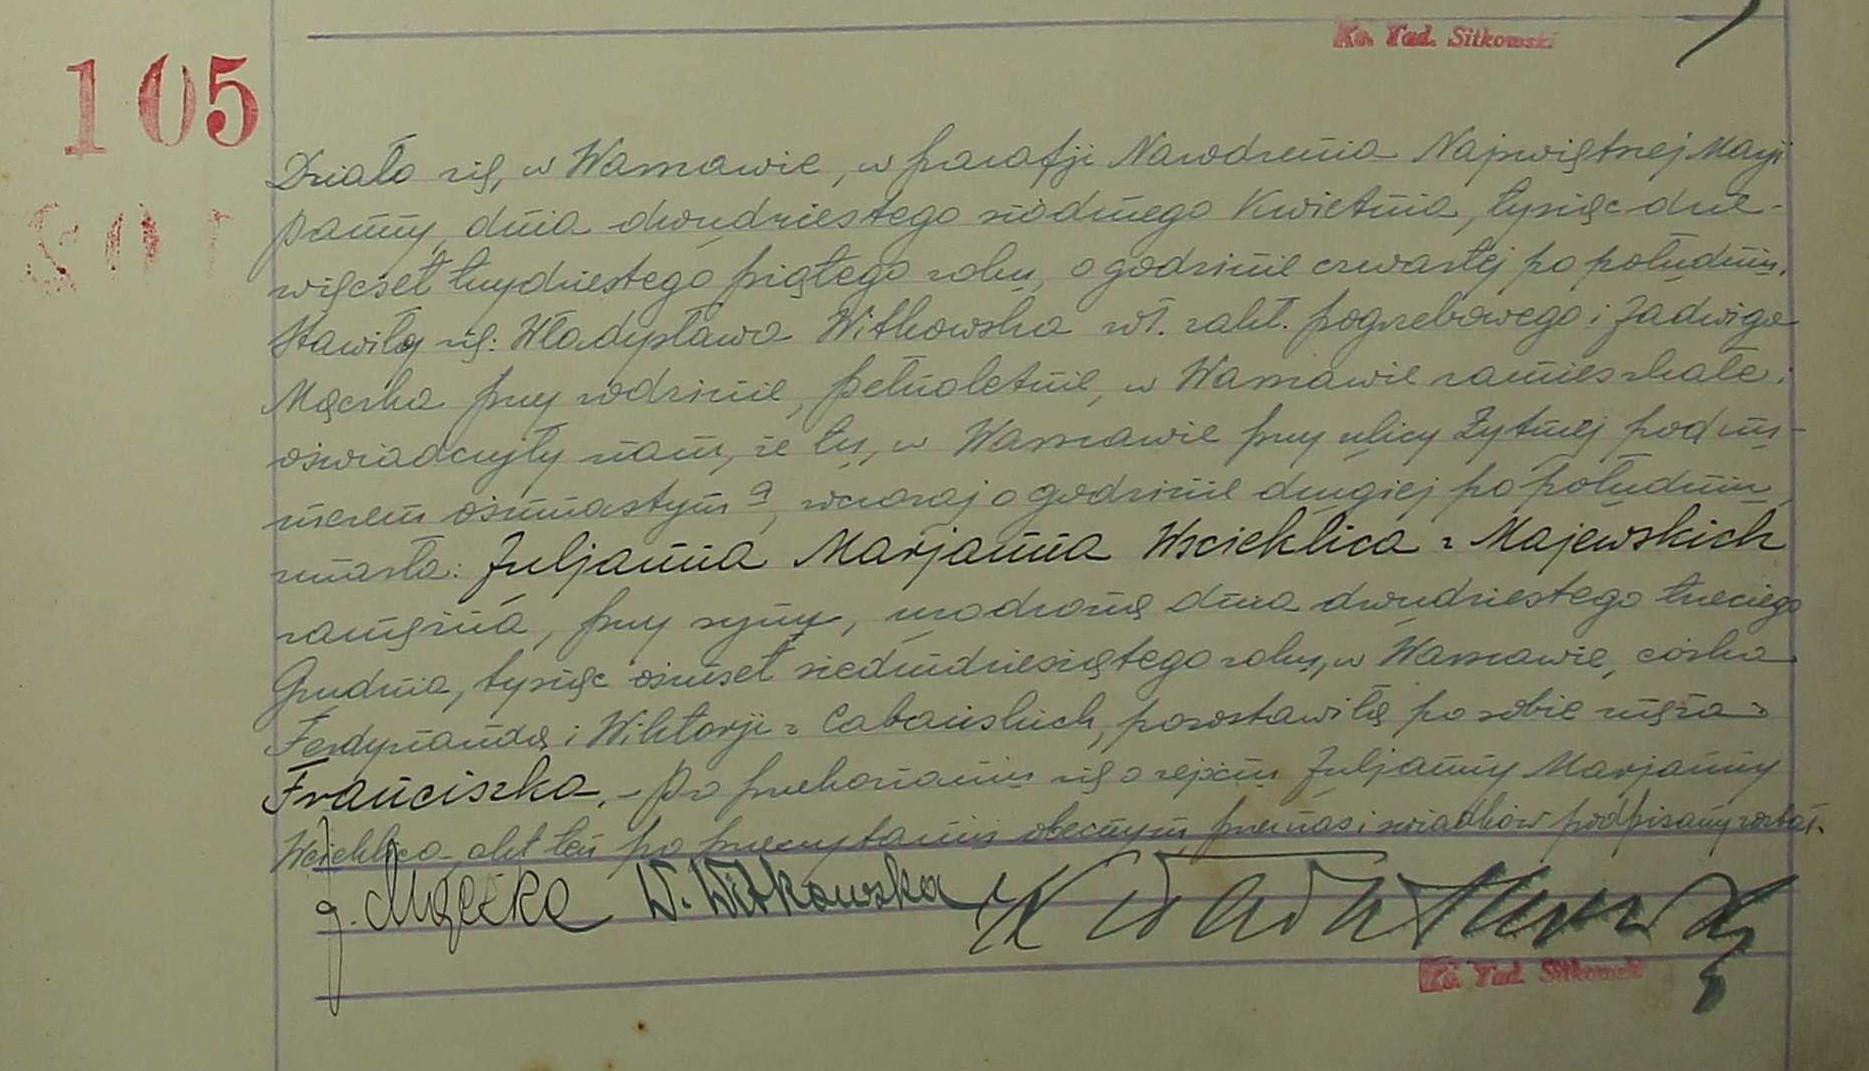 Ks. Tad. Sitkowski
105
Działo się, w Warszawie, w parafji Narodzenia Najświętszej Maryi
Panny, dnia dwudziestego siódmego Kwietnia, tysiąc dzie-
więćset trzydziestego piątego roku, o godzinie czwartej po południu.
Stawiły się: Władysława Witkowska wł. zakł. pogrzebowego i Jadwiga
Męczka przy rodzinie, pełnoletnie, w Warszawie zamieszkałe i
oświadczyły nam, że tu, w Warszawie przy ulicy Żytniej pod nu-
merem ośmnastym a, wczoraj o godzinie drugiej po południu,
zmarła: Juljanna Marjanna Wscieklica z Majewskich
zamężna, przy synu, urodzona dnia dwudziestego trzeciego
Grudnia, tysiąc ośmset siedmdziesiątego roku, w Warszawie, córka
Ferdynanda i Wiktorji z Cabańskich, pozostawiła po sobie męża
Franciszka. – Po przekonaniu się o zejściu Juljanny Marjanny
Wścieklica akt ten po przeczytaniu obecnym, przez nas i świadków podpisany został.
J. Męczka W. Witkowska
Ks. Tad. Sitkowski